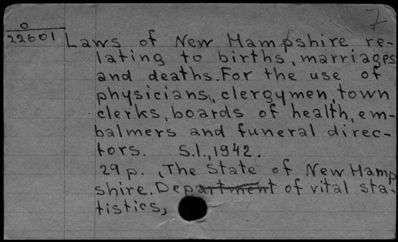 7
0
22601
Laws of New Hampshire re-
lating to births, marriages
and deaths. For the use of
physicians, clergymen, town
clerks, boards of health, em-
balmers and funeral direc-
tors. S.l., 1942.
29 p. (The State of New Hamp
shire. Department of vital sta-
tistics)